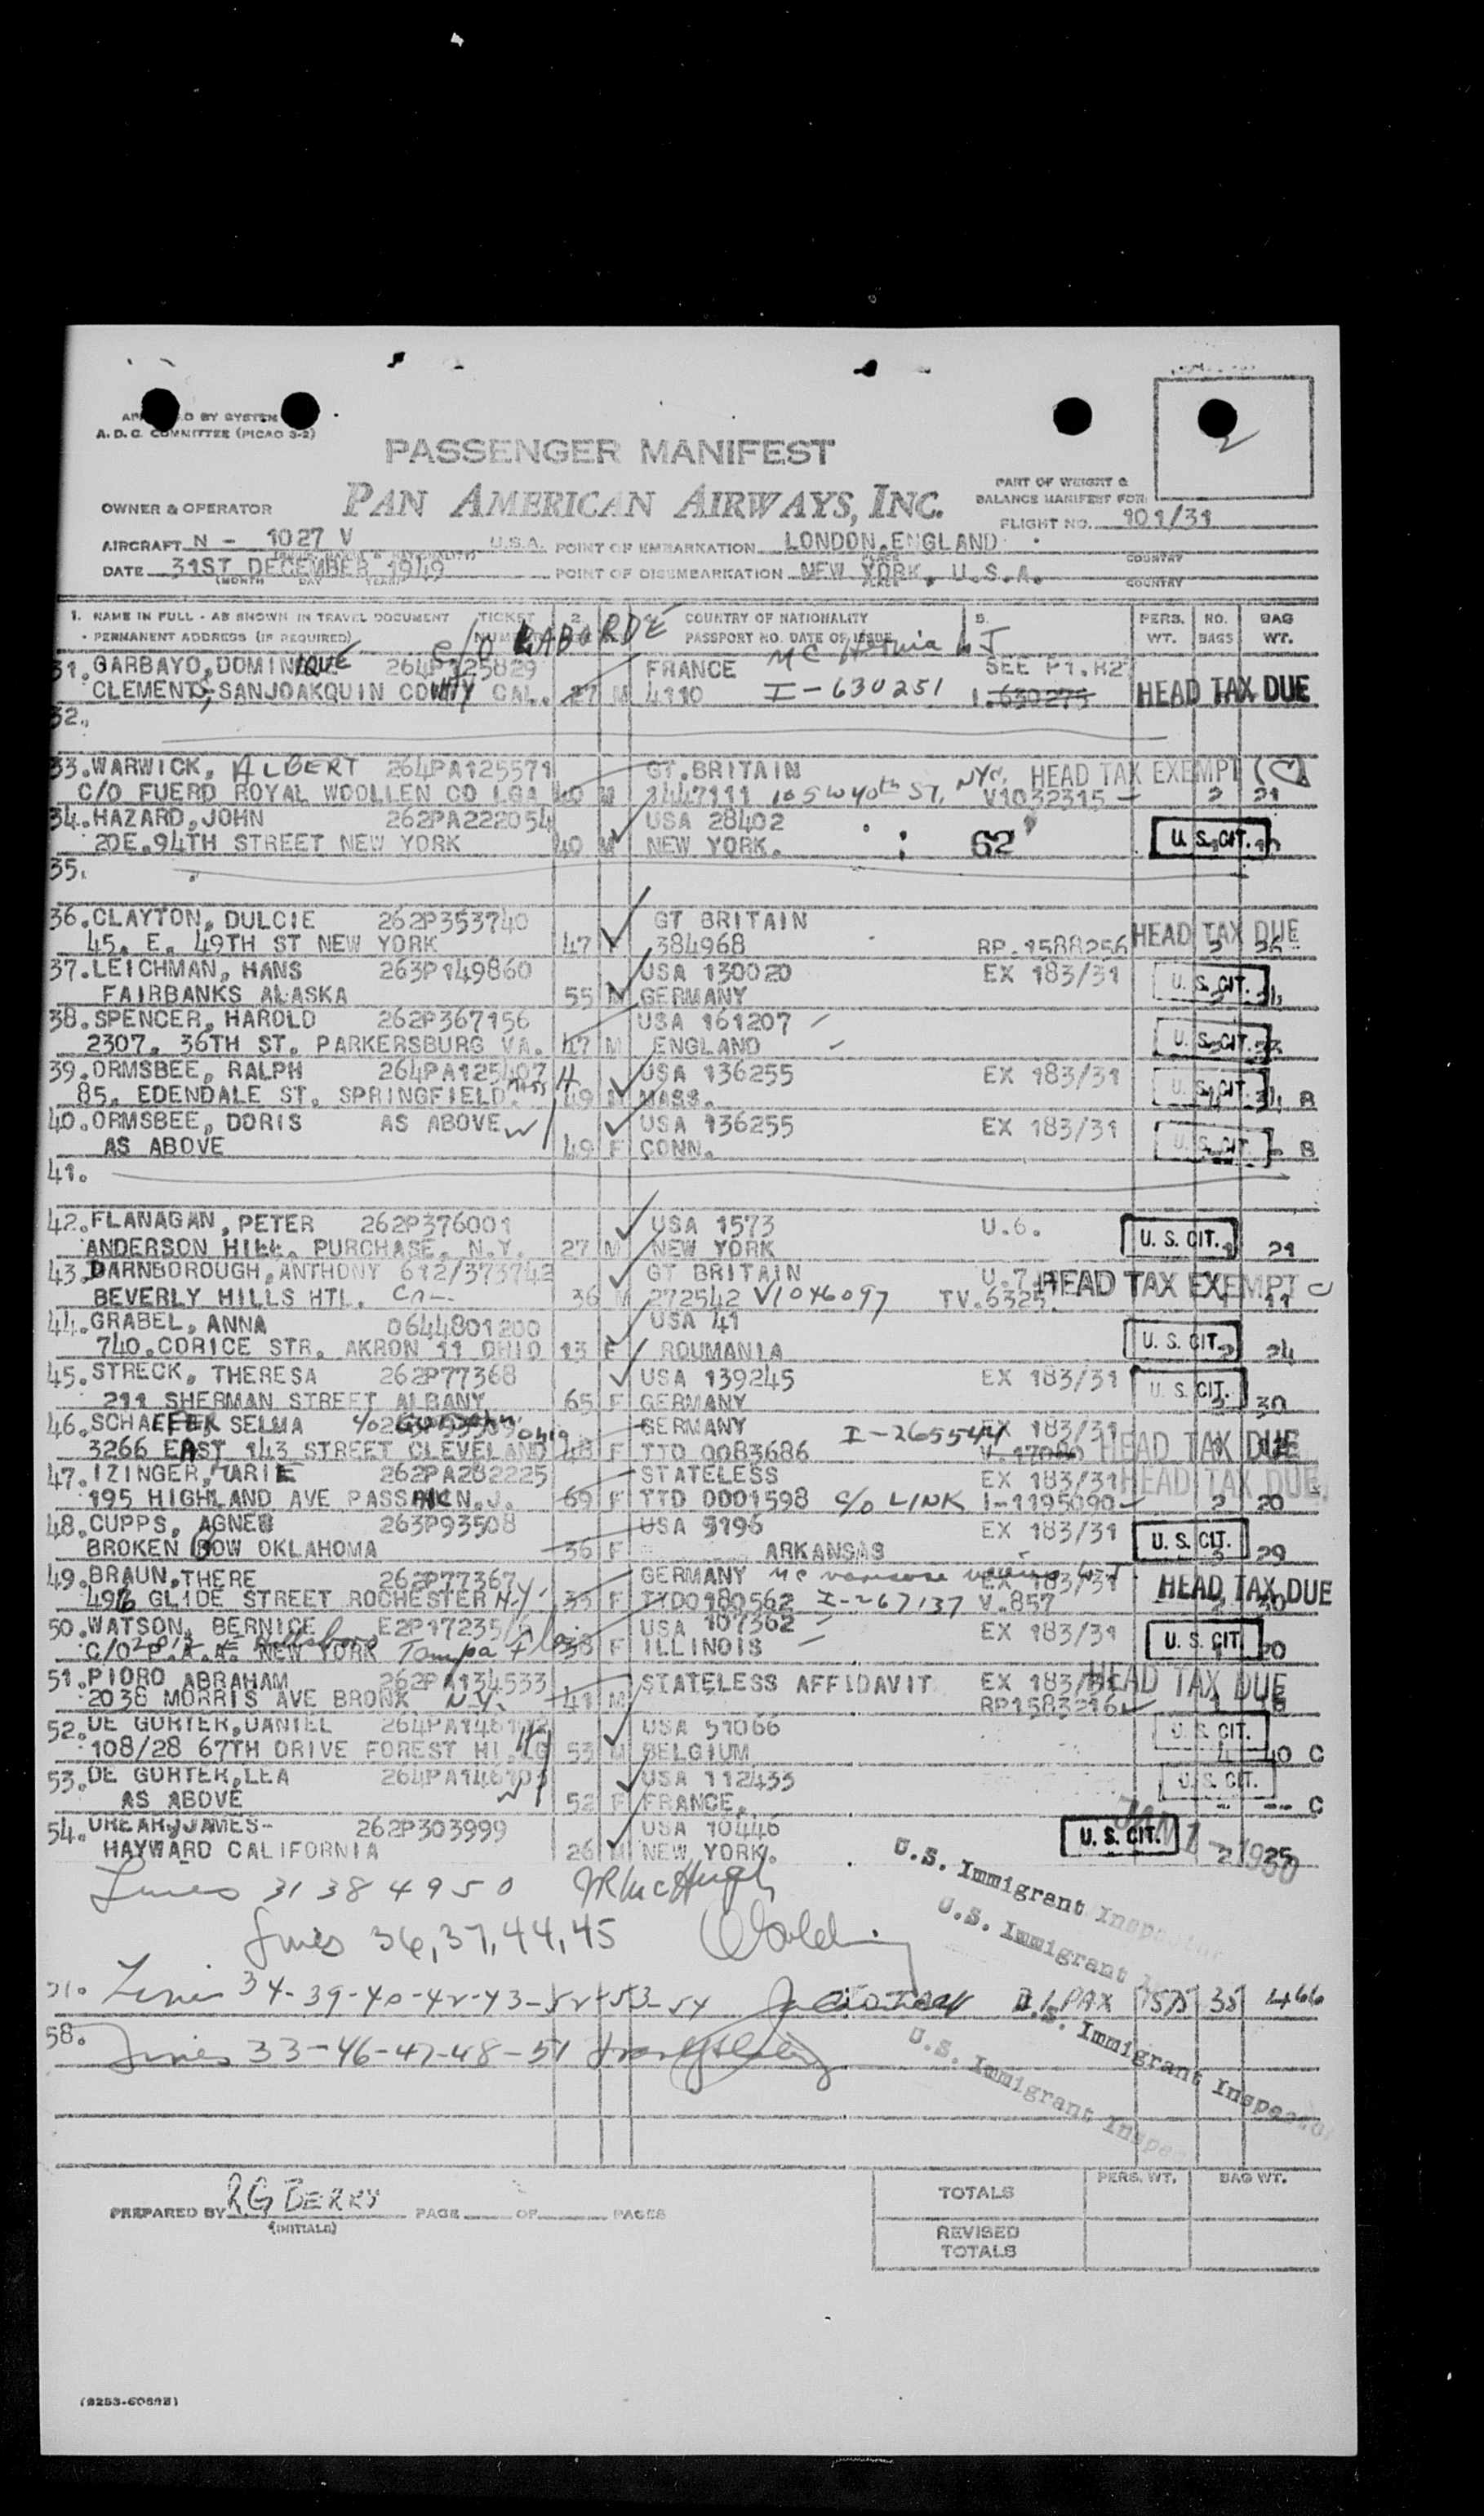 A.D.C. COMMITTEE (PICAO 3-2)
PASSENGER MANIFEST
PAN AMERICAN AIRWAYS, INC.
OWNER & OPERATOR
PART OF WEIGHT &
BALANCE MANIFEST FOR:
FLIGHT NO. 101/31
2
AIRCRAFT N - 1027 V U.S.A. POINT OF EMBARKATION LONDON. ENGLAND
DATE 31ST DECEMBER 1949 POINT OF DISEMBARKATION NEW YORK, U.S.A.
1. NAME IN FULL - AS SHOWN IN TRAVEL DOCUMENT TICKET COUNTRY OF NATIONALITY PERS. NO. BAG
PERMANENT ADDRESS (IF REQUIRED) C/O LABORDE PASSPORT NO. DATE OF ISSUE WT. BAGS WT.
31. GARBAYO, DOMINIQUE 264P125829 FRANCE MC Hernia SEE P1.R2
CLEMENTS, SANJOAKQUIN COUNTY CAL. 27 M 4110 I-630251 HEAD TAX DUE
32.
33. WARWICK, ALBERT 264PA125571 GT. BRITAIN NYC. HEAD TAX EXEMPT
C/O FUERD ROYAL WOOLLEN CO LGA 49 M 1447111 105 W 40th ST. V1032315 2 21
34. HAZARD, JOHN 262PA222054 USA 28402
20E. 94TH STREET NEW YORK 40 M NEW YORK. 62 U.S. CIT.
35.
36. CLAYTON, DULCIE 262P353740 GT BRITAIN HEAD TAX DUE
45. E. 49TH ST NEW YORK 47 F 384968 RP.1588256 2 26
37. LEICHMAN, HANS 263P149860 USA 130020 EX 183/31
FAIRBANKS ALASKA 55 M GERMANY U.S. CIT.
38. SPENCER, HAROLD 262P367156 USA 161207
2307. 36TH ST. PARKERSBURG VA. 47 M ENGLAND U.S. CIT.
39. ORMSBEE, RALPH 264PA125407 H USA 136255 EX 183/31
85. EDENDALE ST. SPRINGFIELD. Mass 49 M MASS. U.S. CIT. B
40. ORMSBEE, DORIS AS ABOVE W USA 136255 EX 183/31
AS ABOVE 49 F CONN. U.S. CIT. - B
41.
42. FLANAGAN, PETER 262P376001 USA 1573 U.6.
ANDERSON HILL. PURCHASE. N.Y. 27 M NEW YORK U.S. CIT. 21
43. DARNBOROUGH, ANTHONY 612/373742 GT BRITAIN U.7. HEAD TAX EXEMPT
BEVERLY HILLS HTL. 36 M 272542 V1046097 TV.6325 11
44. GRABEL, ANNA 0644801200 USA 41
740. CORICE STR. AKRON 11 OHIO 13 F ROUMANIA U.S. CIT. 2 24
45. STRECK, THERESA 262P77368 USA 139245 EX 183/31
211 SHERMAN STREET ALBANY 65 F GERMANY U.S. CIT. 30
46. SCHAEFER SELMA GERMANY EX 183/31
3266 EAST 143 STREET CLEVELAND Ohio 48 F TTD 0083686 I-265544 HEAD TAX DUE
47. IZINGER, MARIE 262PA282225 STATELESS EX 183/31 HEAD TAX DUE
195 HIGHLAND AVE PASSAIC N.J. 69 F TTD 0001598 C/O LINK I-1195090 2 20
48. CUPPS, AGNES 263P93508 USA 5196 EX 183/31
BROKEN BOW OKLAHOMA 36 F ARKANSAS U.S. CIT. 29
49. BRAUN, THERE 262P77367 GERMANY MC varicose veins EX 183/31 HEAD TAX DUE
496 GLIDE STREET ROCHESTER N.Y. 33 F TTD0180562 I-267137 V.857
50. WATSON, BERNICE E2P17235 USA 107362 EX 183/31
C/O P.A.A. NEW YORK Tampa Fla 38 F ILLINOIS U.S. CIT. 20
51. PIORO ABRAHAM 262PA134533 STATELESS AFFIDAVIT EX 183/31 HEAD TAX DUE
2038 MORRIS AVE BRONX N.Y. 41 M RP1583216
52. DE GORTER, DANIEL 264PA146102 H USA 51066
108/28 67TH DRIVE FOREST HI. LG 53 M BELGIUM U.S. CIT. 40 C
53. DE GORTER, LEA 264PA146103 USA 112433
AS ABOVE W 52 F FRANCE. U.S. CIT. - -- C
54. OREAR, JAMES- 262P303999 USA 10446
HAYWARD CALIFORNIA 26 M NEW YORK. U.S. CIT. 2 25
JAN 1 - 1950
Lines 31 38 49 50 JR McHugh U.S. Immigrant Inspector
Lines 36, 37, 44, 45 U.S. Immigrant
Lines 34-39-40-42-43-52-53-54 PAX 1575 35 466
58. Lines 33-46-47-48-51 U.S. Immigrant Inspector
U.S. Immigrant
PREPARED BY RG BERRY PAGE OF PAGES
(INITIALS)
PERS. WT. BAG WT.
TOTALS
REVISED
TOTALS